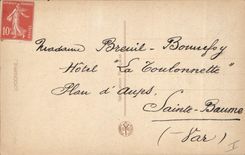 Madame Breuil-Bonnefoy
Hôtel "La Toulonnette"
Plan d'Aups,
Sainte-Baume
(Var)
10